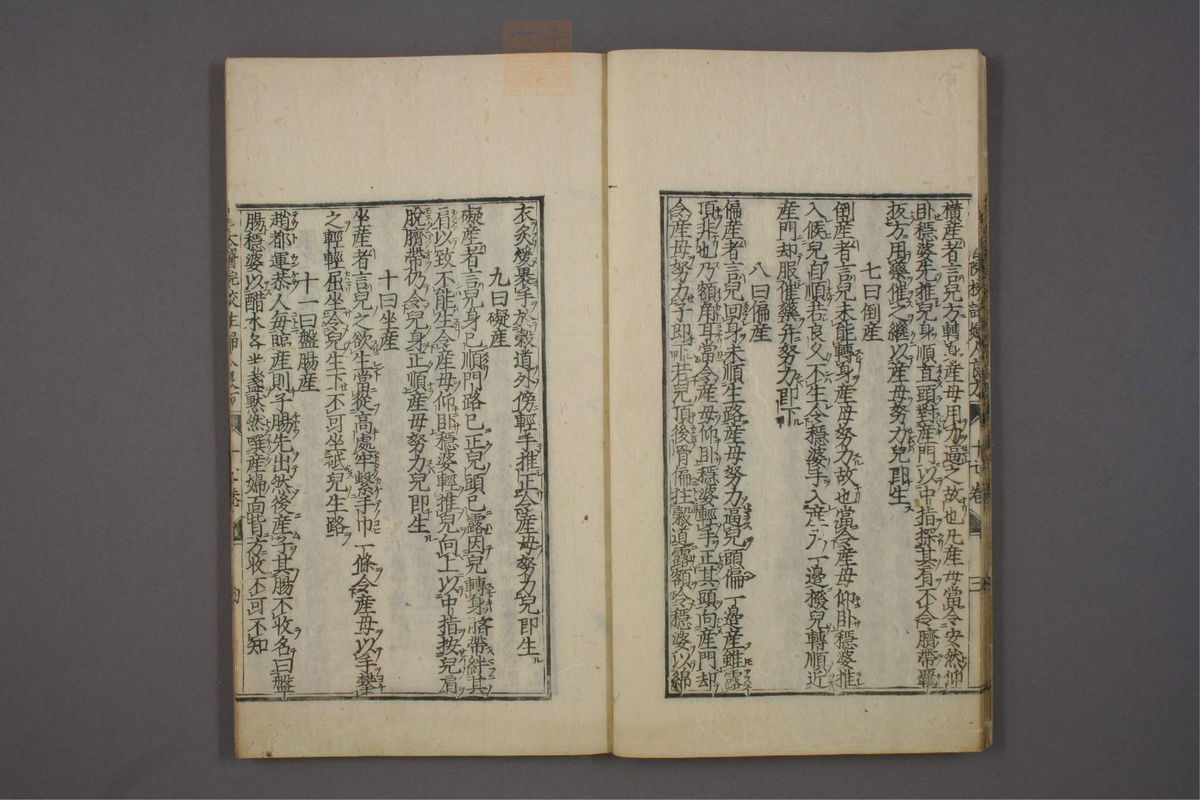 橫産者言兒方轉身産母用力逼之故也凡産母當令安然仰
卧穩婆先推兒身順直頭對産門以中指探其有不令臍帶羈
扳方用藥催之繼以産母努力兒即生
七曰倒産
倒産者言兒未能轉身産母努力故也當令産母仰卧穩婆推
入候兒自順若良久不生令穩婆手入産一邊撥兒轉順近
産門却服催藥并努力即下
八曰偏産
偏産者言兒回身未順生路産母努力逼兒頭偏一邊産雖露
頂非也乃額角耳當令産母仰卧穩婆輕手正其頭向産門却
令産母努力子即下若兒頂後骨偏拄穀道露額令穩婆以綿
衣炙煖裹手於穀道外傍輕手推正令産母努力兒即生
九曰礙産
礙産者言兒身已順門路已正兒頭已露因兒轉身臍帶絆其
肩以致不能生令産母仰卧穩婆輕推兒向上以中指按兒肩
脫臍帶仍令兒身正順産母努力兒即生
十曰坐産
坐産者言兒之欲生當從高處牢繫手巾一條令産母以手攀
之輕輕屈坐令兒生下不可坐祇兒生路
十一曰盤腸産
趙都運恭人每臨産則子腸先出然後産子其腸不收名曰盤
腸穩婆以醋水各半盞默然噀産婦面背方收不可不知